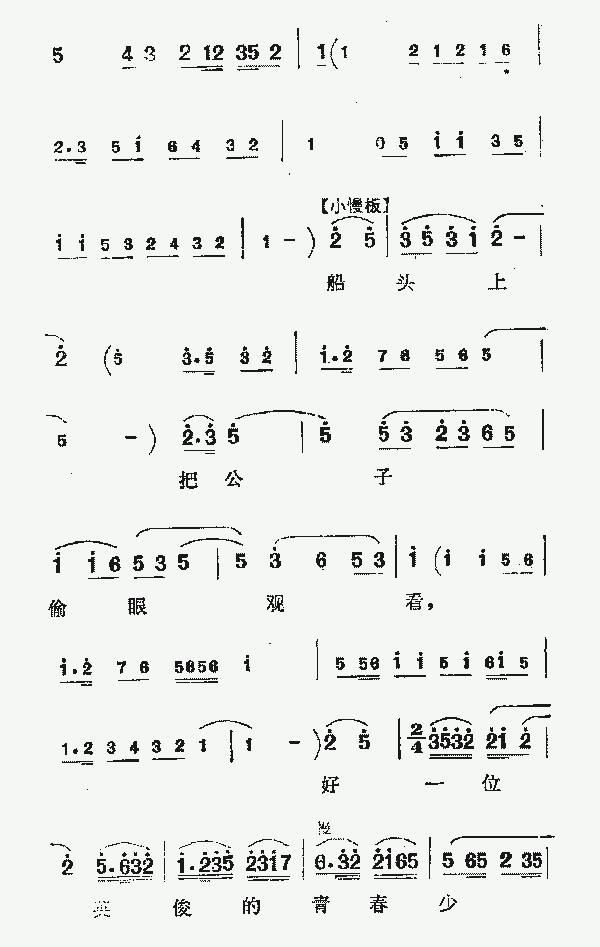 5 4 3 2 12 35 2 | 1 (1 2 1 2 1 6 |
2.3 5 i 6 4 3 2 | 1 0 5 i i 3 5 |
i i 5 3 2 4 3 2 | 1 - ) 【小慢板】 2 5 | 3 5 3 i 2 - |
船 头 上
2 (5 3.5 3 2 | i.2 7 6 5 6 5 |
5 - ) 2.3 5 | 5 5 3 2 3 6 5 |
把 公 子
i i 6 5 3 5 | 5 3 6 5 3 | i (i i 5 6 |
偷 眼 观 看，
i.2 7 6 5656 i | 5 56 i i 5 i 6i 5 |
1.2 3 4 3 2 1 | 1 - ) 2 5 | 2/4 3532 2i 2 |
好 一 位
2 5.632 | i.235 23i7 | 慢 6.32 2i65 | 5 65 2 35 |
英 俊 的 青 春 少